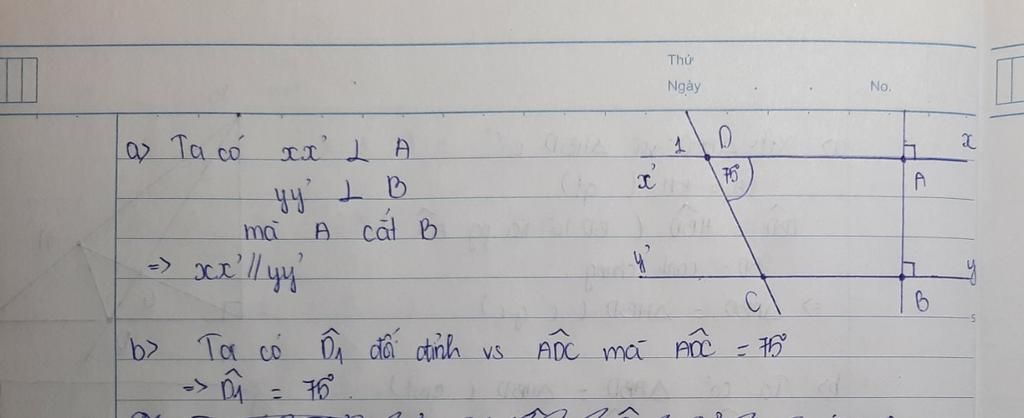 Thứ
Ngày . . No.
a) Ta có xx' ⊥ A
yy' ⊥ B
mà A cắt B
=> xx' // yy'
1 D x
x' 75° A
y' y
C B
b) Ta có D̂1 đối đỉnh vs ADĈ mà ADĈ = 75°
=> D̂1 = 75°.